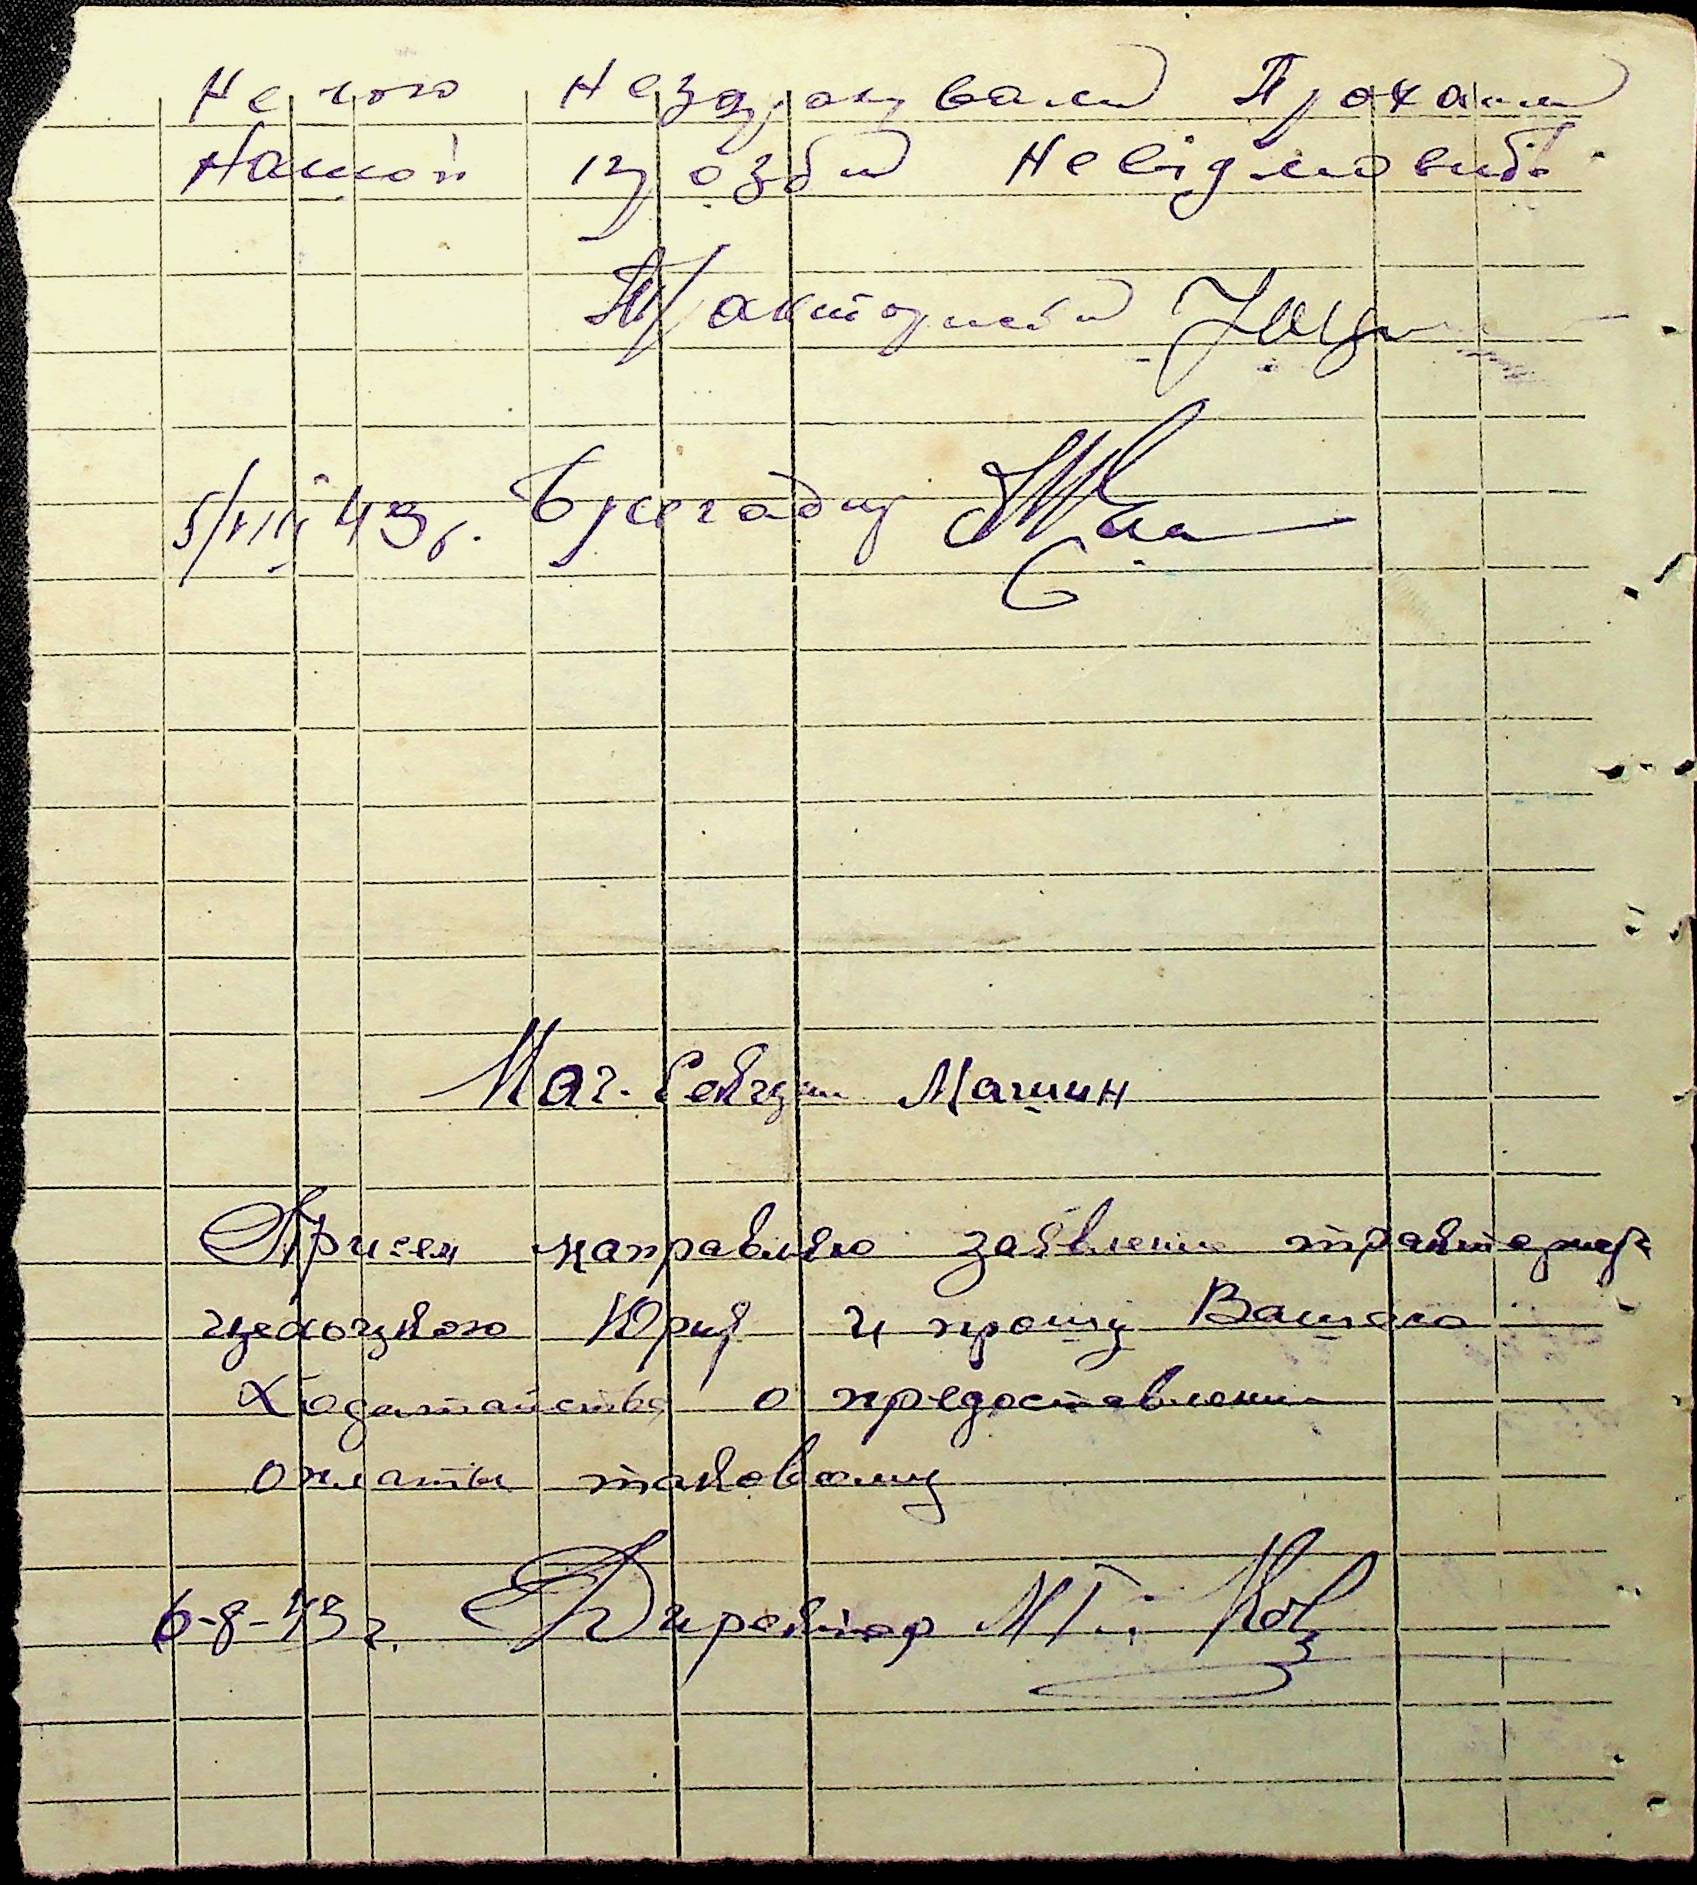 Не чого Незаробували Прохаєм
Нашой прозби Невідмовить.
Трактористи
5/VIII 43 г. Бригадир
Нач. Секции Машин
При сем направляю заявление тракториста
Юрия и прошу Вашего
Ходатайства о предоставлении
оплаты таковому
6-8-43 г. Директор МТС